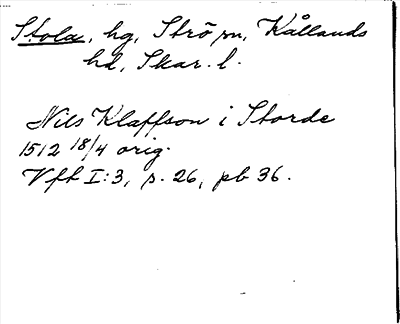 Stola, hg, Strö sn, Kållands
hd, Skar. l.
Nils Klaffson i Storde
1512 18/4 orig.
Vff I:3, s. 26, pb 36.